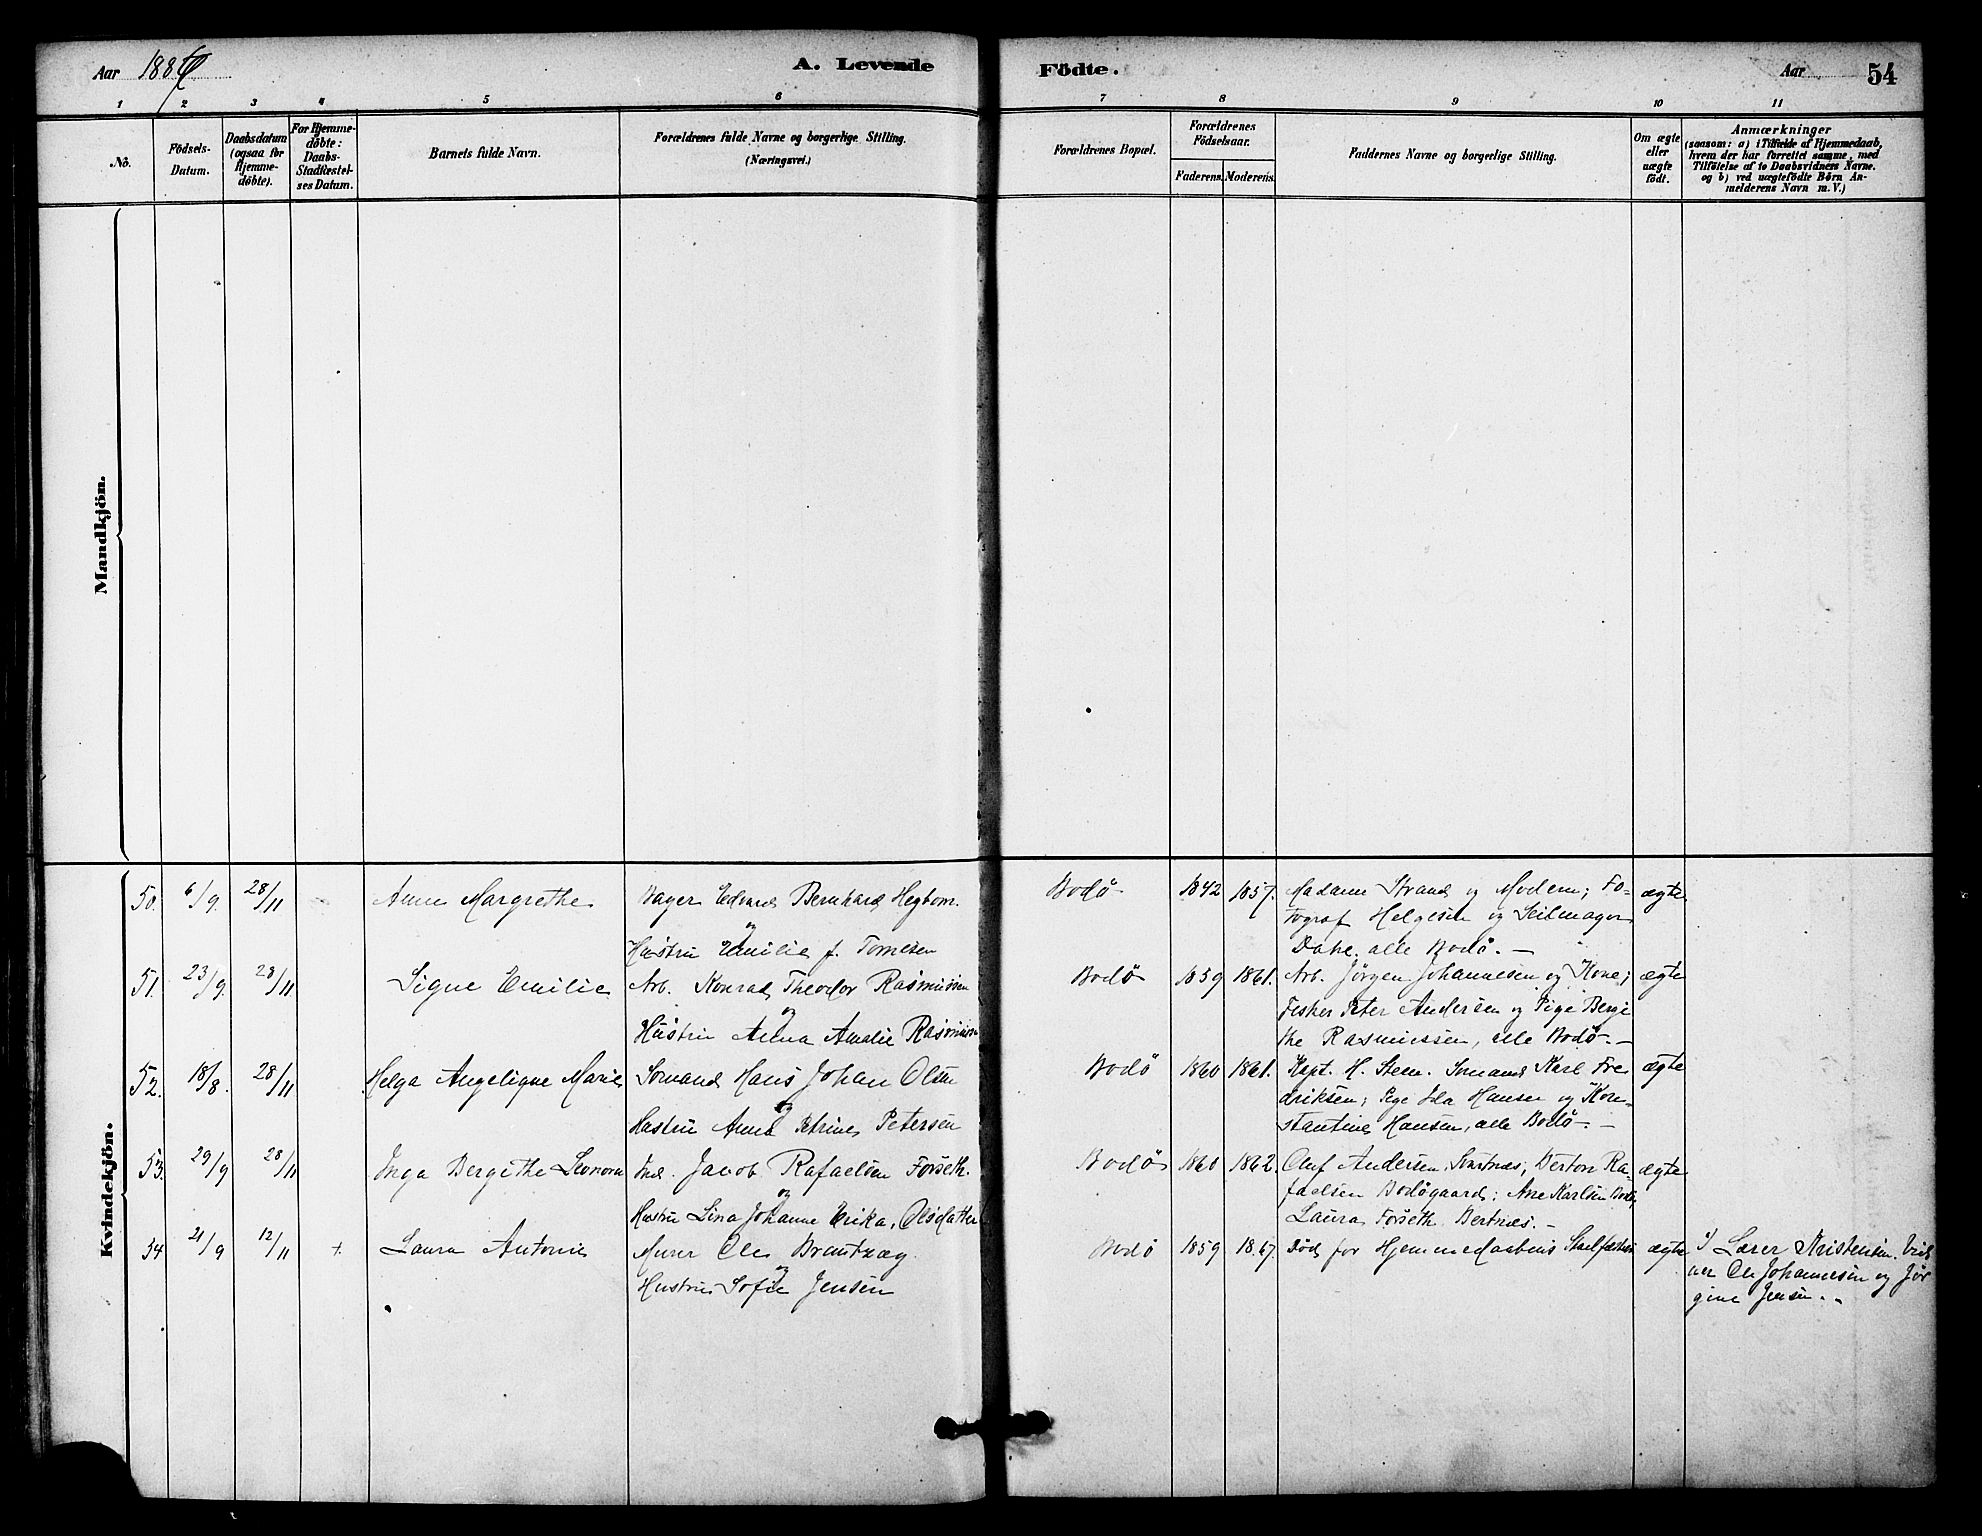 Aar 1886
A. Levende Födte.
Aar
54
1 2 3 4 5 6 7 8 9 10 11
No.
Födsels-
Datum.
Daabsdatum
(ogsaa for
Hjemme-
döbte).
For Hjemme-
döbte:
Daabs-
Stadfæstel-
ses Datum.
Barnets fulde Navn.
Forældrenes fulde Navne og borgerlige Stilling.
(Næringsvei.)
Forældrenes Bopæl.
Forældrenes
Födselsaar.
Faderens. Moderens.
Faddernes Navne og borgerlige Stilling.
Om ægte
eller
uægte
födt.
Anmærkninger
(saasom: a) i Tilfælde af Hjemmedaab,
hvem der har forrettet samme, med
Tilföielse af to Daabsvidners Navne.
og b) ved uægtefödte Børn An-
melderens Navn m. V.)
Mandkjön.
Kvindekjön.
50. 6/9. 28/11 Anne Margrethe Bager Edvard Bernhard Hegbom. Bodö 1842 1857. Madame Strand og Moderen; Fo- ægte
og
tograf Helgesen og Seilmager
Hustru Emilie f. Tornesen
Dahl, alle Bodö. —
51. 23/9. 28/11 Signe Emilie Arb. Konrad Theodor Rasmussen Bodö 1859 1861. Arb. Jörgen Johannesen og Kone; ægte
og
Fisker Peter Andersen og Pige Berge
Hustru Anna Amalie Rasmussen
the Rasmussen, alle Bodö. —
52. 18/8. 28/11 Helga Angelique Marie Sömand Hans Johan Olsen Bodö 1860 1861. Kapt. H. Steen. Sömand Karl Fre ægte
og
driksen; Pige Ida Hansen og Kon-
Hustru Anna Petrine Petersen
stantine Hansen, alle Bodö. —
53. 29/9 28/11 Inga Bergithe Leonora Ind. Jacob Rafaelsen Forseth. Bodö 1860 1862. Oluf Andersen, Ra- ægte
og
faelsen Bodögaard; Ane Karlsen Bodö,
Hustru Lina Johanne Erika, Olsdatter
Laura Forseth Bertnes. —
54. 21/9 12/11 +. Laura Antonie Murer Ole Brautzæg Bodö 1859 1867. Död för Hjemmedaabens Stadfæstelse ægte 1) Lærer Kristensen. Vid
og
ner Ole Johannesen og Jör
Hustru Sofie Jensen
gine Jensen.